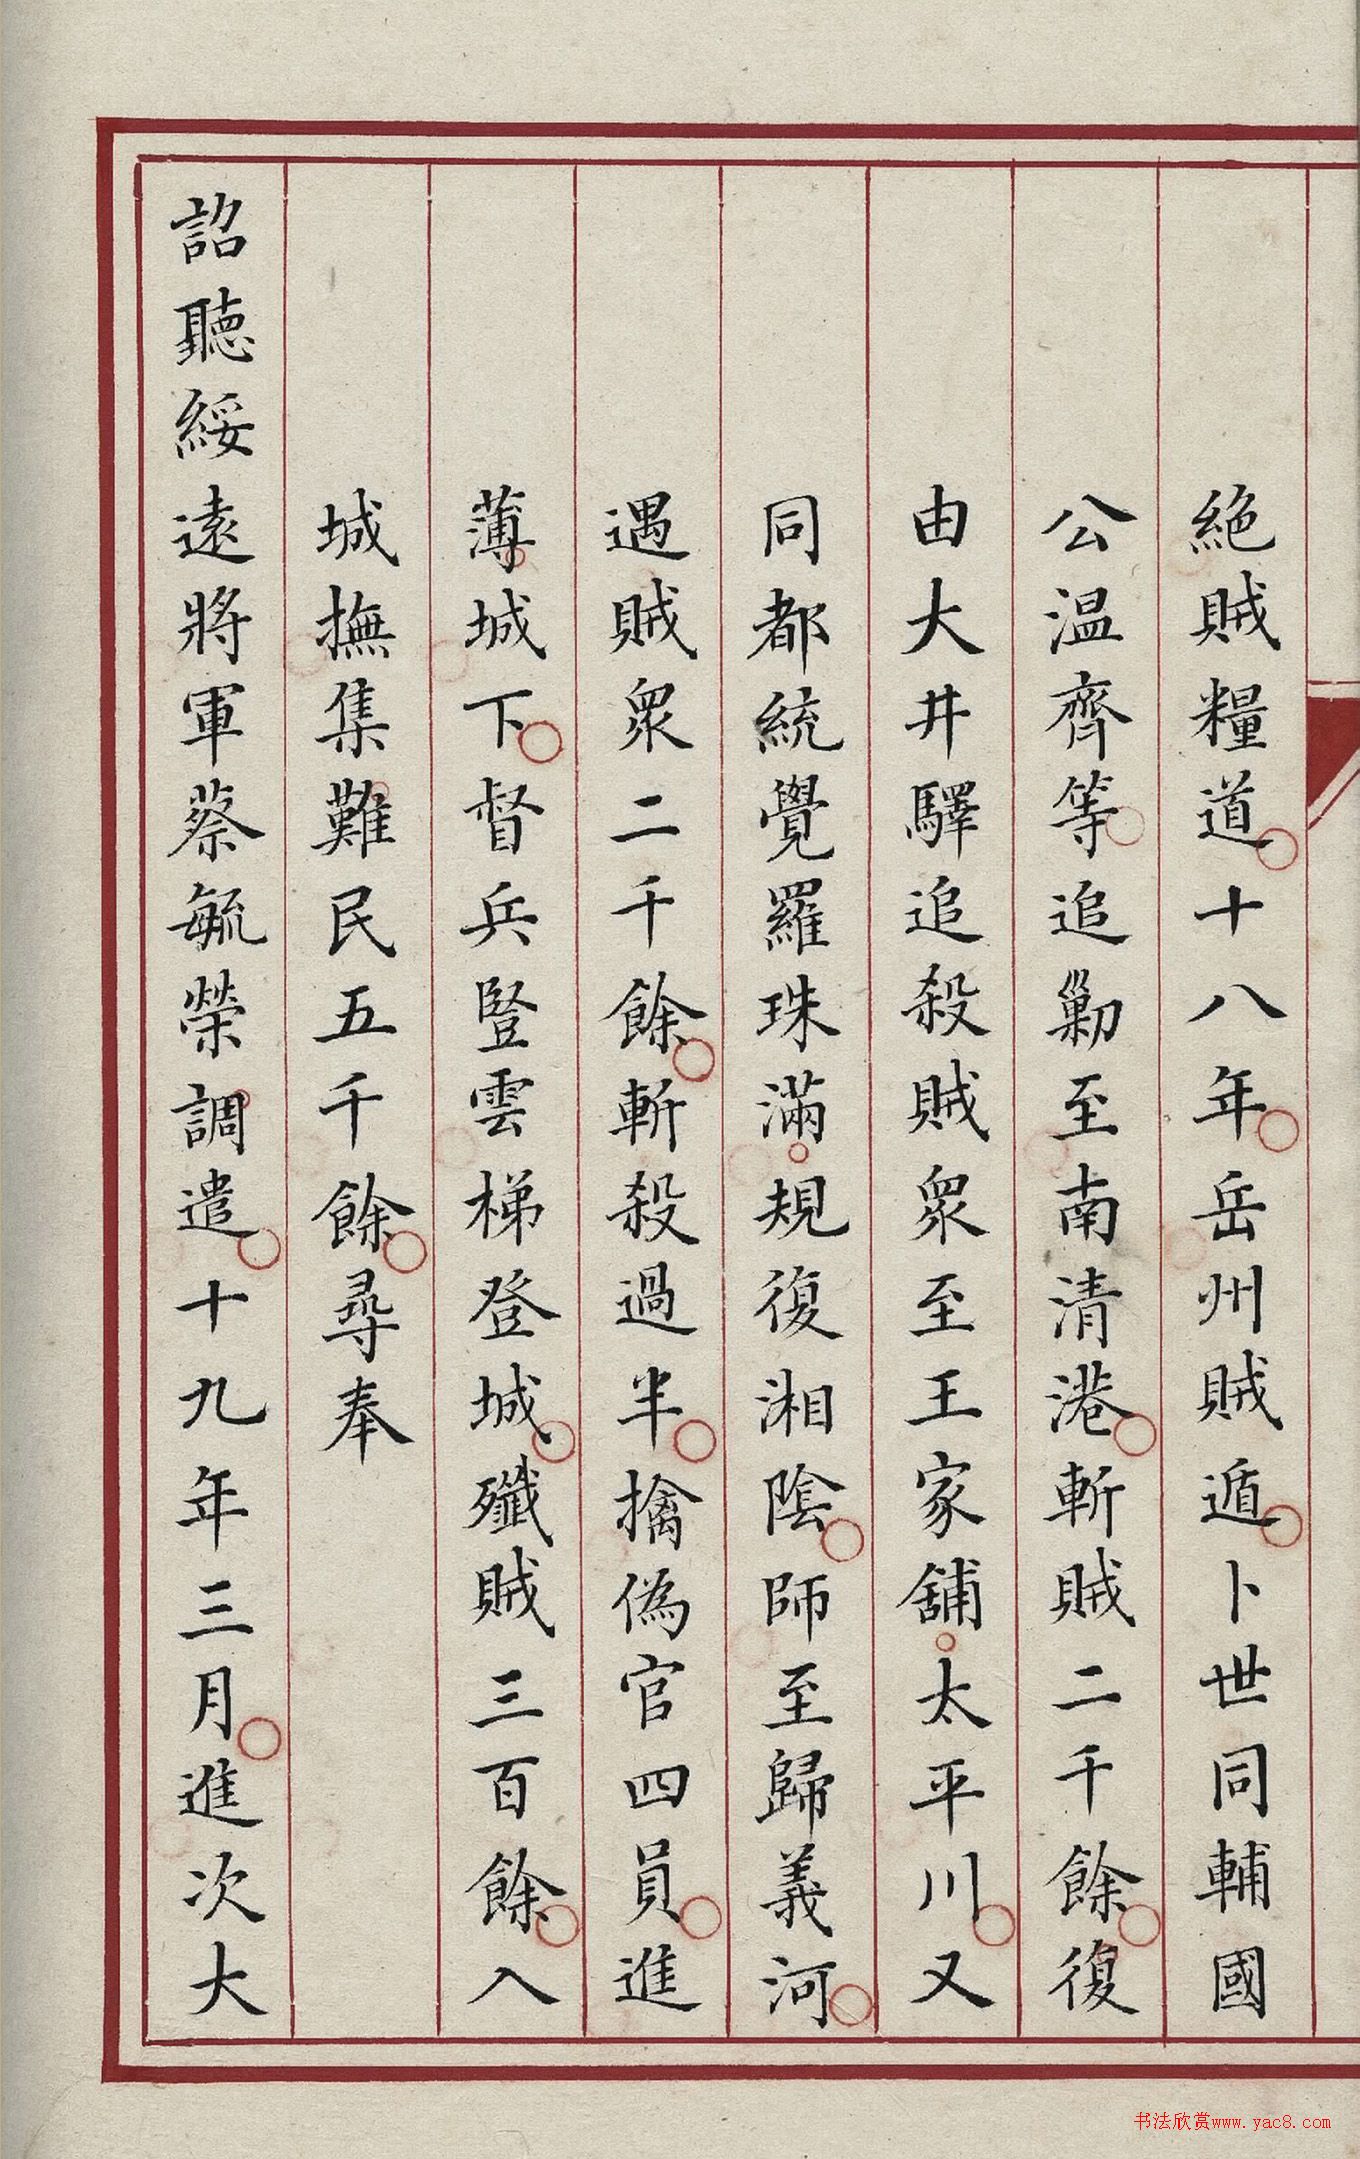 絶賊糧道十八年岳州賊遁卜世同輔國
公温齊等追勦至南清港斬賊二千餘復
由大井驛追殺賊眾至王家舖太平川又
同都統覺羅珠滿規復湘陰師至歸義河
遇賊眾二千餘斬殺過半擒偽官四員進
薄城下督兵豎雲梯登城殲賊三百餘入
城撫集難民五千餘尋奉
詔聽綏遠將軍蔡毓榮調遣十九年三月進次大
书法欣赏www.yac8.com